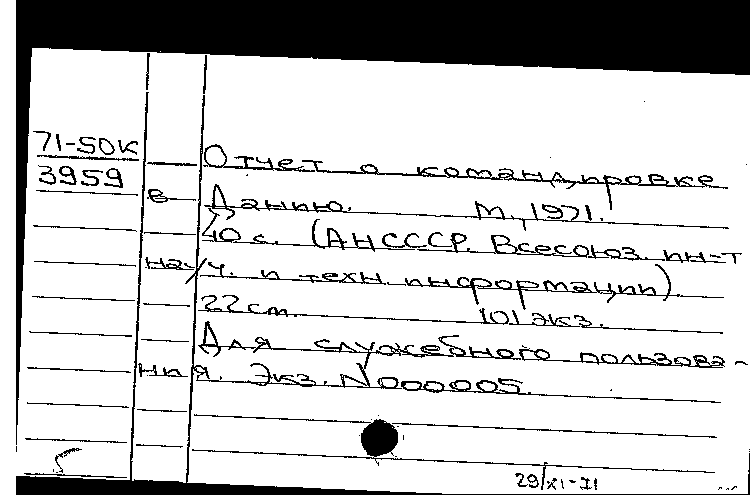 71-50К
3959
Отчет о командировке
в Данию. М., 1971.
40 с. (АН СССР. Всесоюз. ин-т
науч. и техн. информации)
22 см. 101 экз.
Для служебного пользова-
ния. Экз. N 000005.
5
29/XI-71